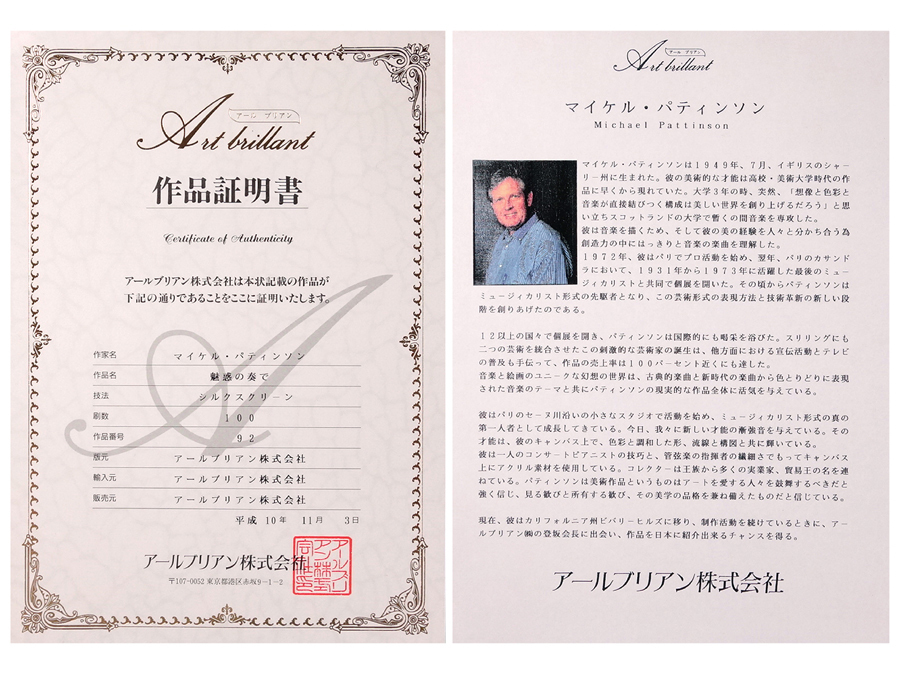 アール ブリアン
Art brillant
作品証明書
Certificate of Authenticity
アールブリアン株式会社は本状記載の作品が
下記の通りであることをここに証明いたします。
作家名 マイケル・パティンソン
作品名 魅惑の奏で
技法 シルクスクリーン
刷数 100
作品番号 92
版元 アールブリアン株式会社
輸入元 アールブリアン株式会社
販売元 アールブリアン株式会社
平成 10年 11月 3日
アールブリアン株式会社
〒107-0052 東京都港区赤坂9-1-2
アール ブリアン
Art brillant
マイケル・パティンソン
Michael Pattinson
マイケル・パティンソンは1949年、7月、イギリスのシャー
リー州に生まれた。彼の美術的な才能は高校・美術大学時代の作
品に早くから現れていた。大学3年の時、突然、「想像と色彩と
音楽が直接結びつく構成は美しい世界を創り上げるだろう」と思
い立ちスコットランドの大学で暫くの間音楽を専攻した。
彼は音楽を描くため、そして彼の美の経験を人々と分かち合う為
創造力の中にはっきりと音楽の楽曲を理解した。
1972年、彼はパリでプロ活動を始め、翌年、パリのカサンド
ラにおいて、1931年から1973年に活躍した最後のミュー
ジィカリストと共同で個展を開いた。その頃からパティンソンは
ミュージィカリスト形式の先駆者となり、この芸術形式の表現方法と技術革新の新しい段
階を創りあげたのである。
12以上の国々で個展を開き、パティンソンは国際的にも喝采を浴びた。スリリングにも
二つの芸術を統合させたこの刺激的な芸術家の誕生は、他方面における宣伝活動とテレビ
の普及も手伝って、作品の売上率は100パーセント近くにも達した。
音楽と絵画のユニークな幻想の世界は、古典的楽曲と新時代の楽曲から色とりどりに表現
された音楽のテーマと共にパティンソンの現実的な作品全体に活気を与えている。
彼はパリのセーヌ川沿いの小さなスタジオで活動を始め、ミュージィカリスト形式の真の
第一人者として成長してきている。今日、我々に新しい才能の漸強音を与えている。その
才能は、彼のキャンバス上で、色彩と調和した形、流線と構図と共に輝いている。
彼は一人のコンサートピアニストの技巧と、管弦楽の指揮者の繊細さでもってキャンバス
上にアクリル素材を使用している。コレクターは王族から多くの実業家、貿易王の名を連
ねている。パティンソンは美術作品というものはアートを愛する人々を鼓舞するべきだと
強く信じ、見る歓びと所有する歓び、その美学の品格を兼ね備えたものだと信じている。
現在、彼はカリフォルニア州ビバリーヒルズに移り、制作活動を続けているときに、アー
ルブリアン㈱の登坂会長に出会い、作品を日本に紹介出来るチャンスを得る。
アールブリアン株式会社